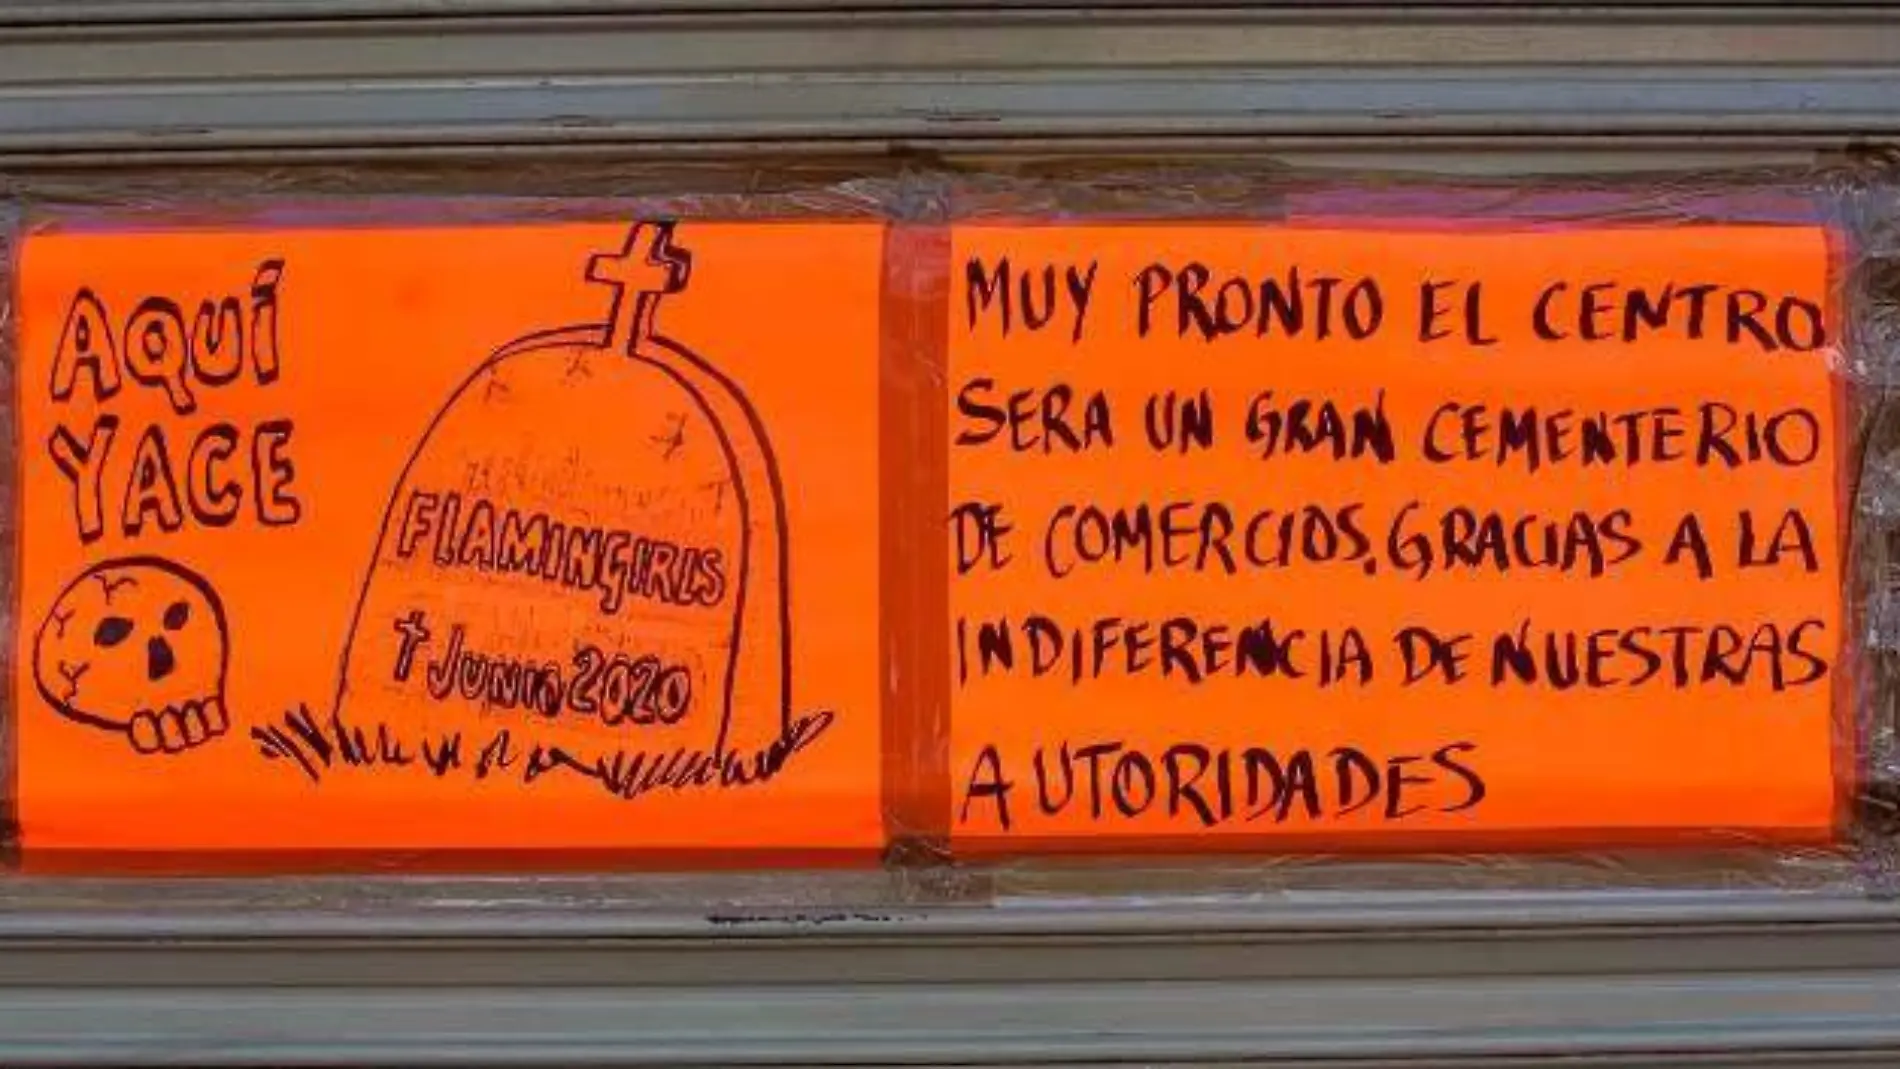 AQUÍ
YACE
FLAMINGIRLS
† JUNIO 2020
MUY PRONTO EL CENTRO
SERA UN GRAN CEMENTERIO
DE COMERCIOS. GRACIAS A LA
INDIFERENCIA DE NUESTRAS
AUTORIDADES